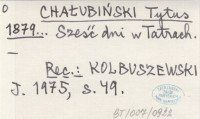 0 CHAŁUBIŃSKI Tytus
1879... Sześć dni w Tatrach.
—
Rec.: KOLBUSZEWSKI
J. 1975, s. 49.
BT/007/0922